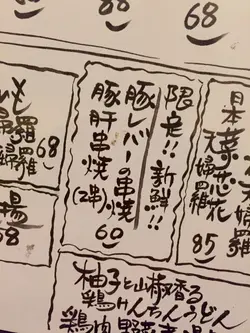 68
限定!!新鮮!!
豚レバーの串焼
豚肝串焼(2串)
60
日本
菜芯花
天婦羅
85
羅
婦羅
68
揚
68
柚子と山椒香る
鶏けんちんうどん
鶏肉野菜